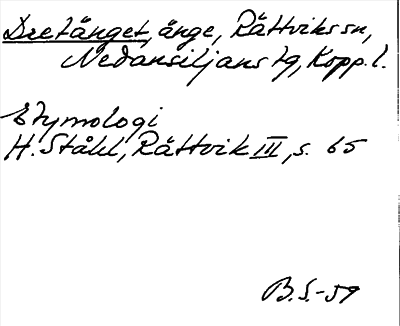 Dretänget, änge, Rättviks sn,
Nedansiljans tg, Kopp. l.
Etymologi
H. Ståhl, Rättvik III, s. 65
B.S.-59